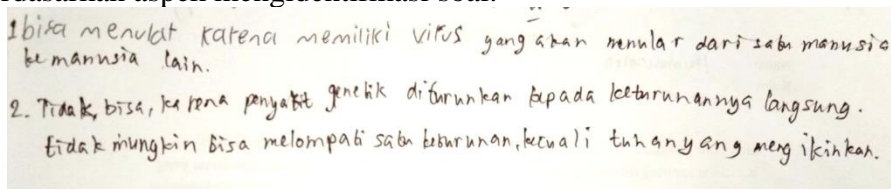 1 bisa menular karena memiliki virus yang akan menular dari satu manusia
ke manusia lain.
2. Tidak, bisa, karena penyakit genetik diturunkan kepada keturunannya langsung.
tidak mungkin bisa melompati satu keturunan, kecuali tuhan yang mengikinkan.